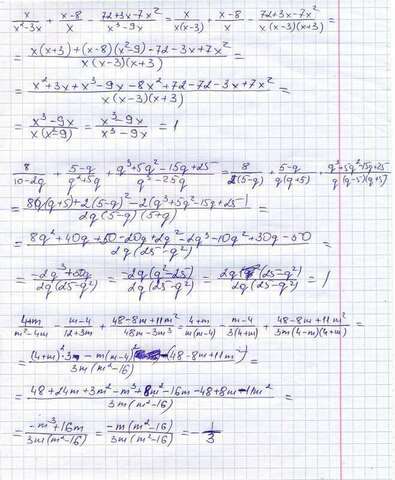 x/(x²-3x) + (x-8)/x - (72+3x-7x²)/(x³-9x) = x/(x(x-3)) + (x-8)/x - (72+3x-7x²)/(x(x-3)(x+3)) =
= (x(x+3)+(x-8)(x²-9)-72-3x+7x²)/(x(x-3)(x+3)) =
= (x²+3x+x³-9x-8x²+72-72-3x+7x²)/(x(x-3)(x+3)) =
= (x³-9x)/(x(x²-9)) = (x³-9x)/(x³-9x) = 1
8/(10-2q) + (5-q)/(q²+5q) + (q³+5q²-15q+25)/(q³-25q) = 8/(2(5-q)) + (5-q)/(q(q+5)) - (q³+5q²-15q+25)/(q(q-5)(q+5))
= (8q(q+5)+2(5-q)²-2(q³+5q²-15q+25))/(2q(5-q)(5+q)) =
= (8q²+40q+50-20q+2q²-2q³-10q²+30q-50)/(2q(25-q²)) =
= (-2q³+50q)/(2q(25-q²)) = (-2q(q²-25))/(2q(25-q²)) = (2q(25-q²))/(2q(25-q²)) = 1
(4+m)/(m²-4m) + (m-4)/(12+3m) + (48-8m+11m²)/(48m-3m³) = (4+m)/(m(m-4)) - (m-4)/(3(4+m)) + (48-8m+11m²)/(3m(4-m)(4+m)) =
= ((4+m)²·3 - m(m-4)² - (48-8m+11m²))/(3m(m²-16)) =
= (48+24m+3m²-m³+8m²-16m-48+8m-11m²)/(3m(m²-16)) =
= (-m³+16m)/(3m(m²-16)) = (-m(m²-16))/(3m(m²-16)) = -1/3